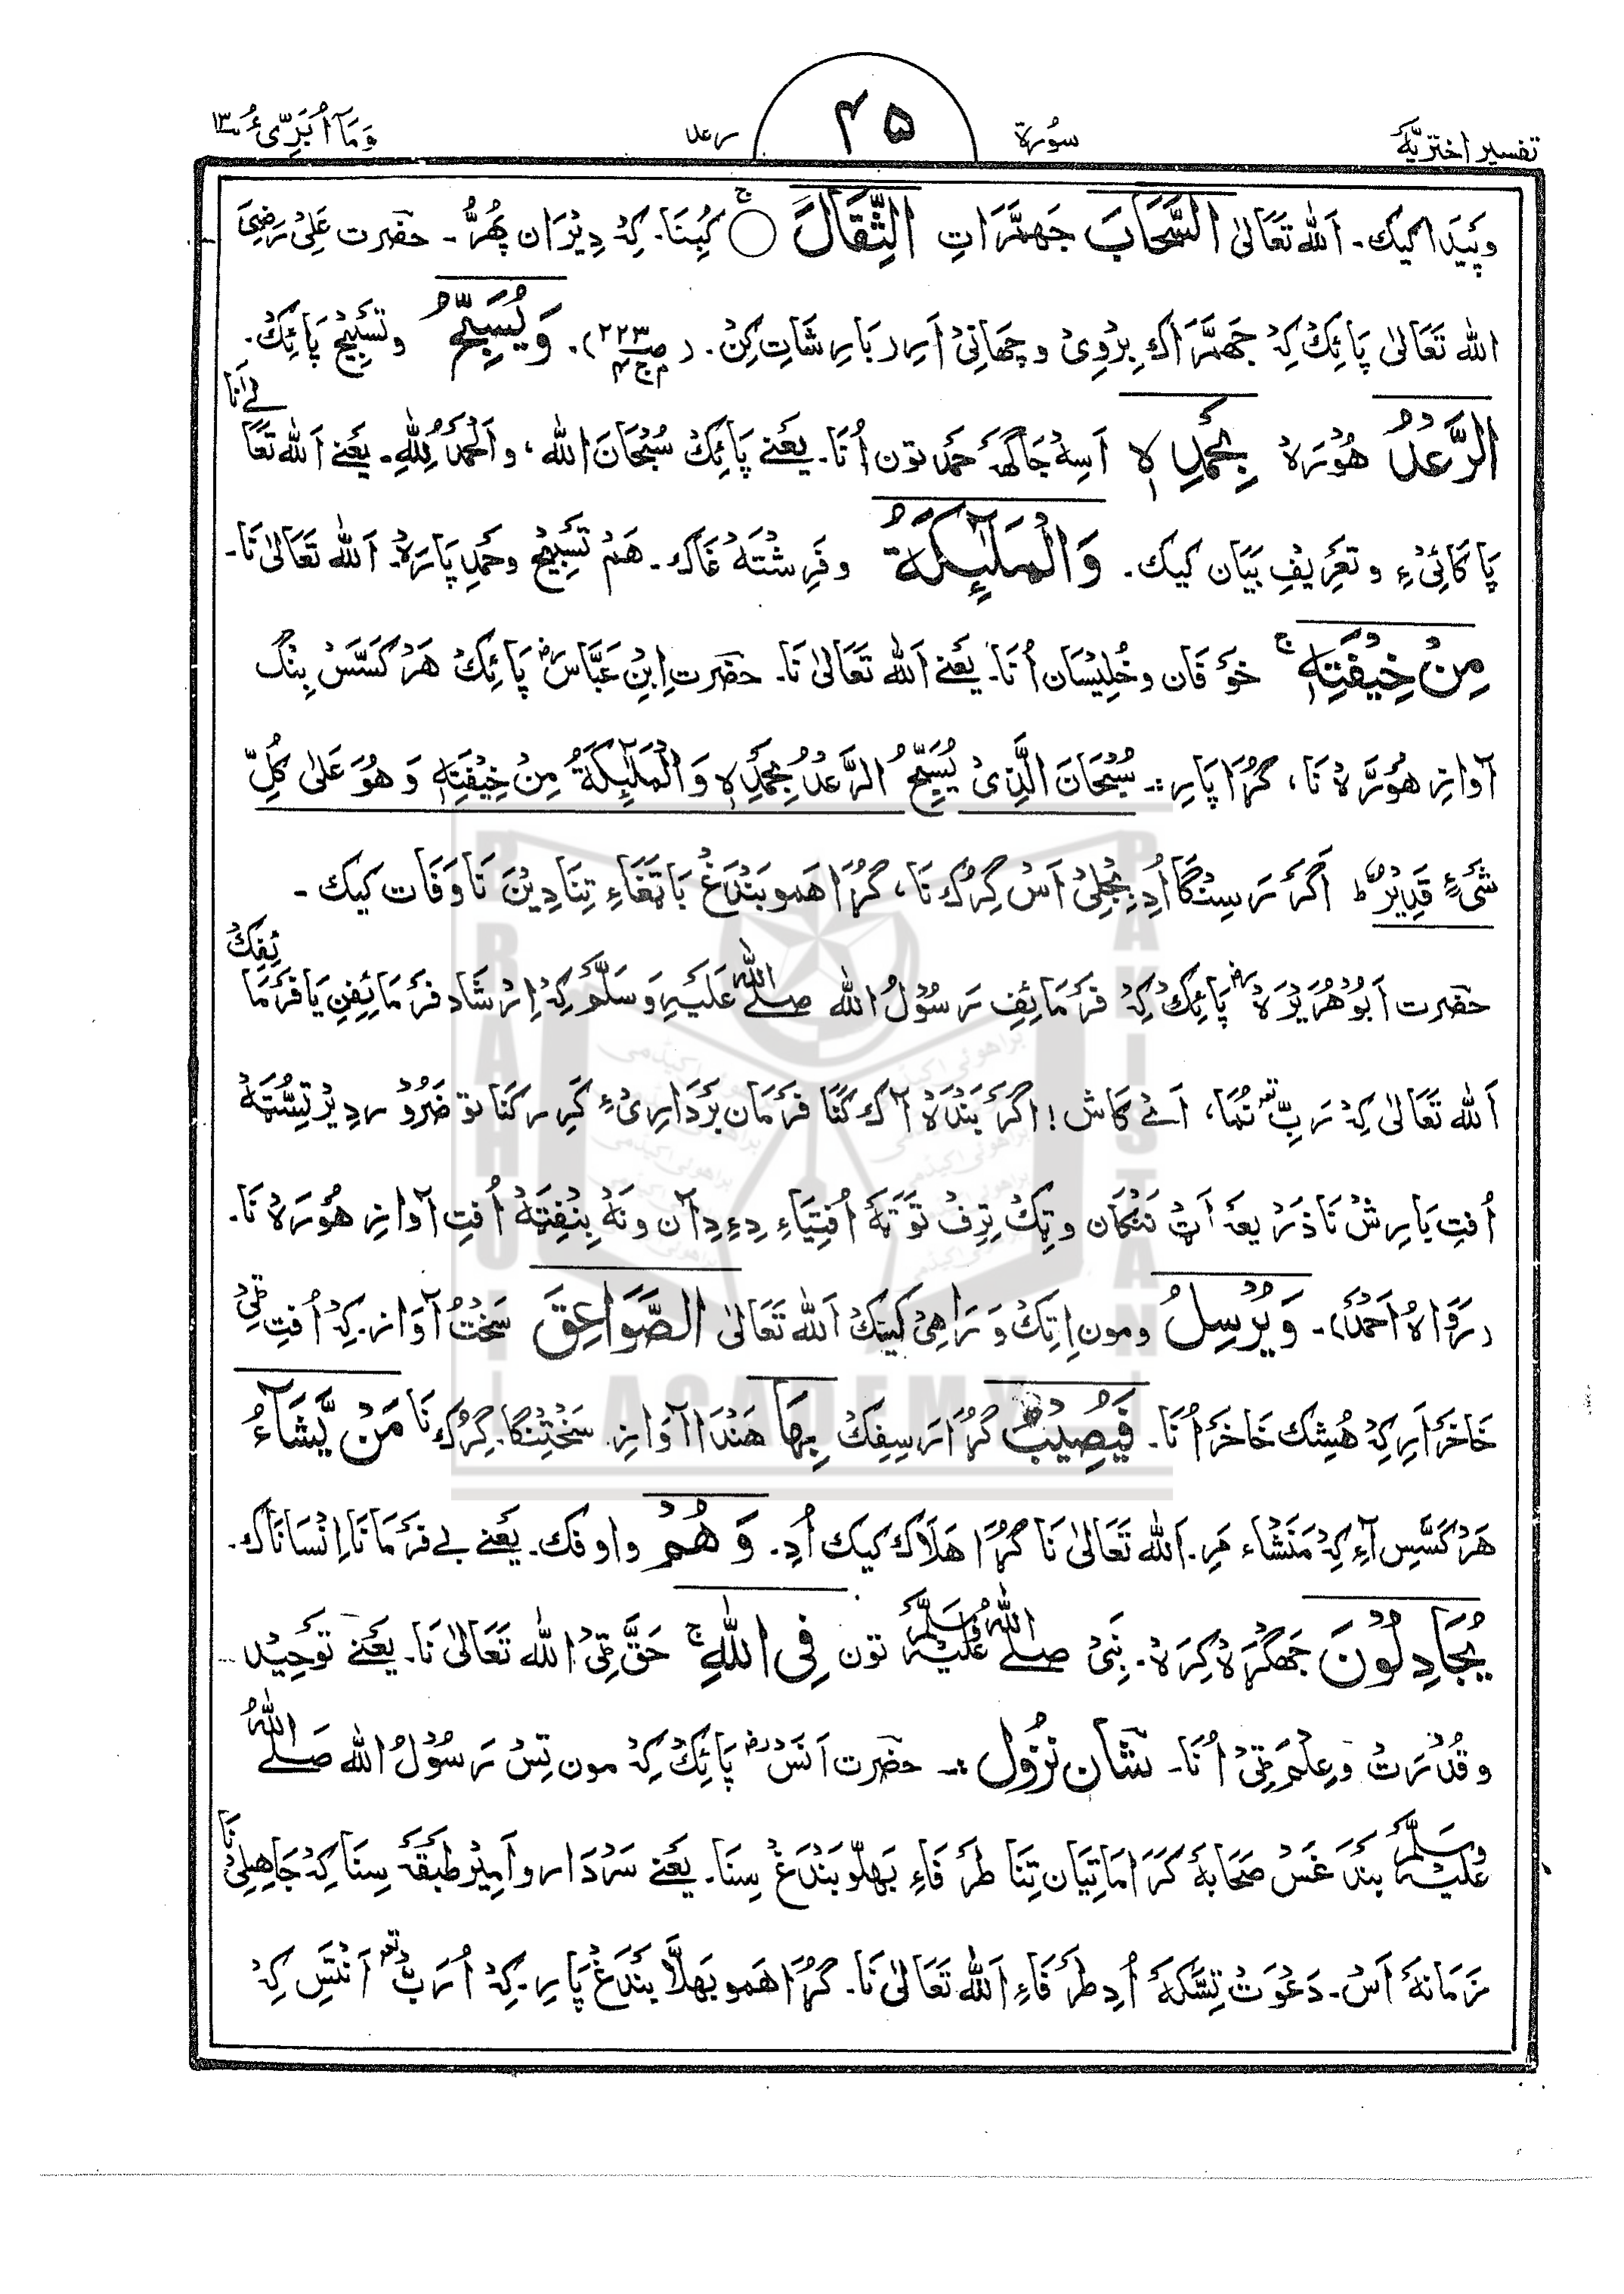 تفسیر اختریّہ سُورۃ ۴۵ رعد وَمَآ اُبَرِّیُٔ ۱۳
و پَیدَا کیک۔ اَللہ تَعَالیٰ السَّحَابَ جَھمَّرَاتِ الثِّقَالَ ۝ ج کُبِنَا۔ کِہ دِیْرَان پُھرُّ۔ حضرت عَلِیْ رَضِیَ
اللہ تَعَالیٰ پَائِکْ کِہ جَھمَّرَاک بِرْوِیْ و چھَانِیْ اَرِر بَارِشَاتِ کِنْ۔ (صـ ۲۲۳ م ج ۴)۔ وَیُسَبِّحُ و تَسْبِیْح پَائِکْ۔
الرَّعْدُ ھُوْرَہْ بِحَمْدِہٖ اَسِہْ جَاگَہ حَمْد تون اُنَا۔ یَعْنے پَائِکْ سُبْحَانَ اللہ، و اَلْحَمْدُ لِلّٰہِ۔ یَعْنے اَللہ تَعَالےٰ نَا
پَاکَائِیْءِ و تَعْرِیْفِ بَیَان کیک۔ وَالْمَلٰٓئِکَۃُ و فَرِشْتَہْ غَاک۔ ھَمْ تَسْبِیْح و حَمْدِ پَارَہْ۔ اَللہ تَعَالیٰ نَا۔
مِنْ خِیْفَتِہٖ ج خَوْفَان و خُلِیْسَان اُنَا۔ یَعْنے اَللہ تَعَالیٰ نَا۔ حضرت اِبْنِ عَبَّاسْ رض پَائِکْ ھَرْ کَسَّسْ بِنْگ
آوازِ ھُوْرَّہْ نَا، گُرَّا پَارِ :۔ سُبْحَانَ الَّذِیْ یُسَبِّحُ الرَّعْدُ بِحَمْدِہٖ وَ الْمَلٰٓئِکَۃُ مِنْ خِیْفَتِہٖ وَ ھُوَ عَلیٰ کُلِّ
شَیْءٍ قَدِیْرٌ ط اَگَر رَسِنْگَا اُدِ بِجْلِیْ اَسْ گِرُک نَا، گُرَّا ھَمو بَنْدَغْ بَاتَغَاءِ تِنَا دِیْنَ نَا وَفَات کیک ۔
حضرت اَبُوْھُرَیْرَہْ رض پَائِکْ کِہْ فَرْمَائِفِ رَسُوْلُ اللہ صلے اللہ عَلَیْہِ وَسَلَّمْ کِہْ اِرْشَاد فَرْمَائِفِنِ یَا فَرْمَائِفِکْ
اَللہ تَعَالیٰ کِہْ رَبِّ تع نُمَا، اَئے کَاش! اَگَر بَنْدَہْ آک کَنَا فَرْمَان بَرْدَارِیْءِ کَرِر کَنَا تو ضَرُوْر دِیْر تِسُّتَہْ
اُفتِ بَارِشْ نَا ذَرْیعَہ اَٹْ نَنْکَان و تِکْ تِرِفْ تَوَّتَہْ اُفْتِیَاءِ دِءِ دِآن و نَہْ بِنْفِتَہْ اُفتِ آوازِ ھُوْرَہْ نَا۔
(رَوَاہُ اَحْمَدْ)۔ وَیُرْسِلُ و مون اِتِکْ وَ رَاھِیْ کَیْکْ اَللہ تَعَالیٰ الصَّوَاعِقَ سَخْتُ آوَاز۔ کِہْ اُفتِ ٹِیْ
خَاخَر اَرِ کِہْ ھُشِک خَاخَر اُنَا۔ فَیُصِیْبُ گُرَّا رَسِفِکْ بِھَا ھَنْدَا آوَازِ۔ سَخْتِنْگَا۔ گِرُک نَا مَنْ یَّشَآءُ
ھَرْ کَسَّسِ آءِ کِہْ مَنْشَاء مَرِ۔ اَللہ تَعَالیٰ نَا گُرَّا ھَلَاک کیک اُدِ۔ وَ ھُمْ و اوفک۔ یَعْنے بے فَرْمَانَا اِنْسَانَاک۔
یُجَادِلُوْنَ جَھگَرَہْ کِرَہْ۔ نَبِیْ صلے اللہ علیہ وسلم تون فِی اللّٰہِ ج حَقّ ٹِیْ اللہ تَعَالیٰ نَا۔ یَعْنے تَوْحِیْد
و قُدْرَتْ و عِلْم ٹِیْ اُنَا۔ شَانِ نُزُول :۔ حضرت اَنَسْ رض پَائِکْ کِہْ مون تِسْ رَسُوْلُ اللہ صَلے اللہُ
علیہ وسلم بَنْدَغَسْ صَحَابَۂ کَرَامَاتِیَان تِنَا طَرْفَاءِ بَھلّو بَنْدَغْ سِنَا۔ یَعْنے سَرْدَار و اَمِیْر طَبْقَہ سِنَا کِہْ جَاھِلِیْ نَا
زَمَانَہ اَسْ۔ دَعْوَتْ تِسَّکَہ اُدِ طَرْفَاءِ اَللہ تَعَالیٰ نَا۔ گُرَّا ھَمو بَھلَّا بَنْدَغْ پَارِ۔ کِہْ اُ رَبّ تع اَنْتَسِ کِہْ